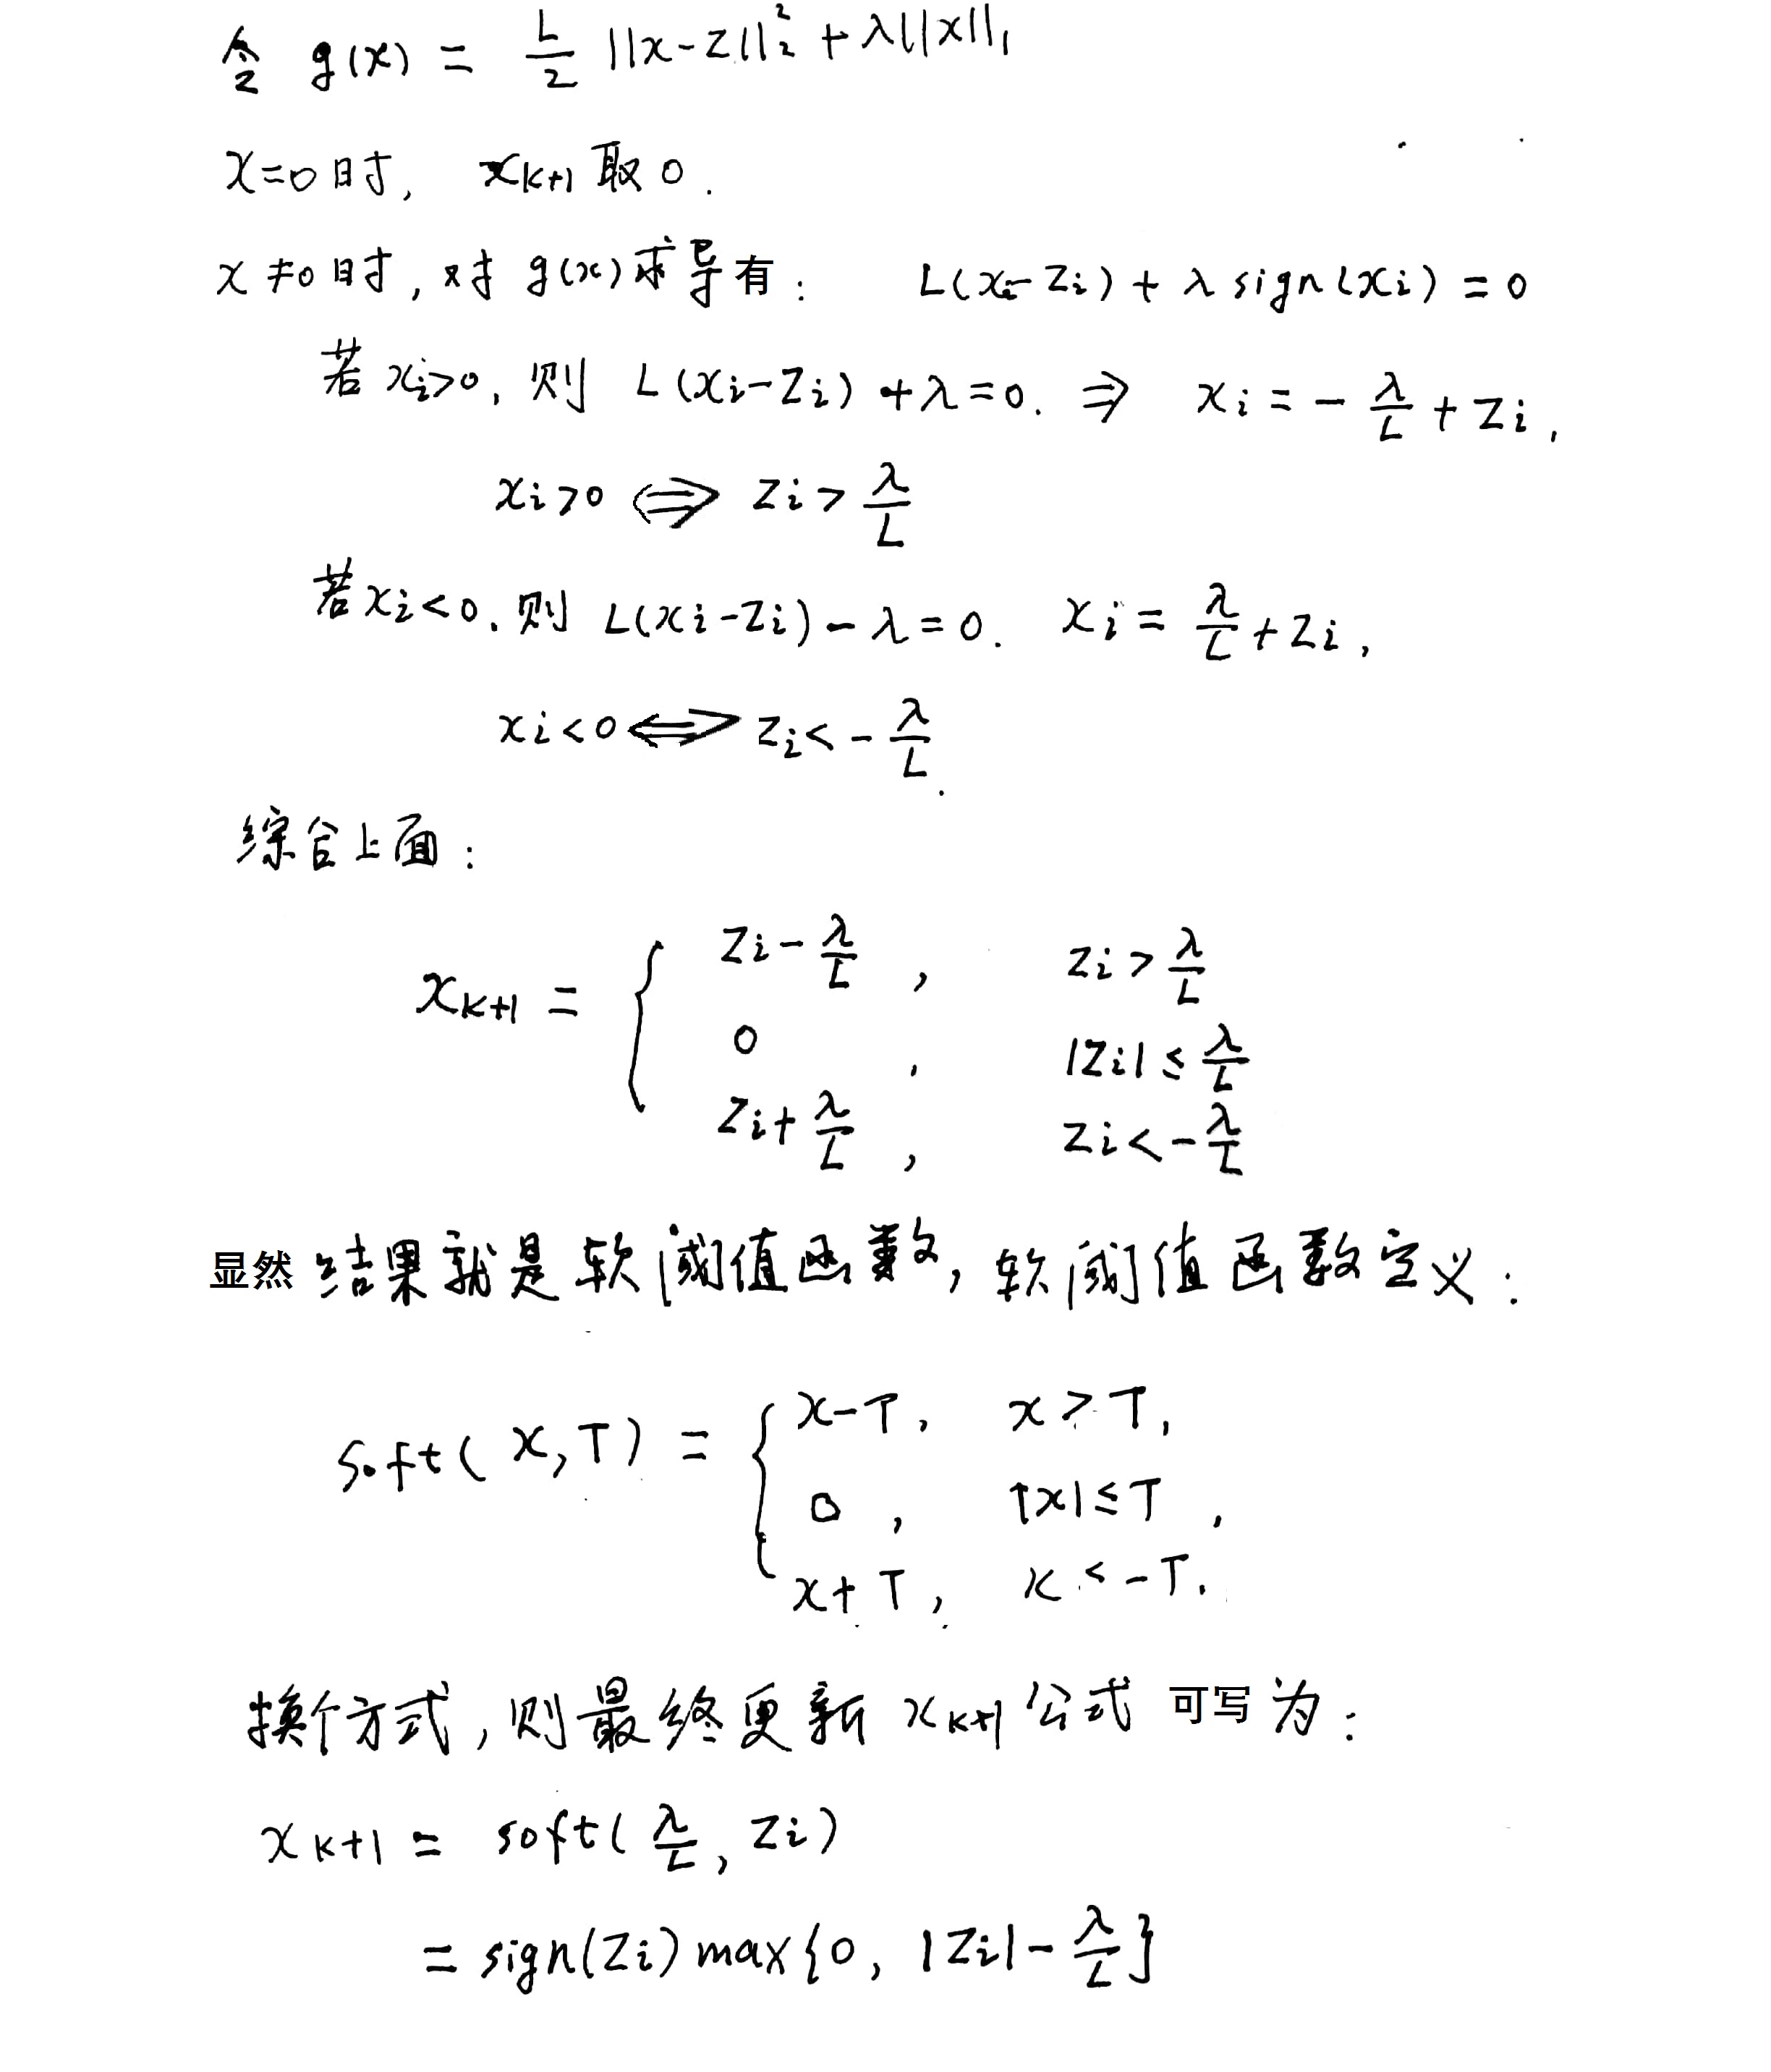 令 g(x) = L/2 ||x-z||₂² + λ||x||₁
x=0时, xₖ₊₁ 取 0.
x≠0时, 对 g(x)求导有: L(xᵢ-zᵢ) + λ sign(xᵢ) = 0
若 xᵢ>0, 则 L(xᵢ-zᵢ)+λ=0. ⇒ xᵢ = -λ/L + zᵢ,
xᵢ>0 ⇔ zᵢ > λ/L
若 xᵢ<0, 则 L(xᵢ-zᵢ)-λ=0. xᵢ = λ/L + zᵢ,
xᵢ<0 ⇔ zᵢ < -λ/L.
综合上面:
xₖ₊₁ = { zᵢ - λ/L , zᵢ > λ/L
0 , |zᵢ| ≤ λ/L
zᵢ + λ/L , zᵢ < -λ/L
显然 结果就是软阈值函数, 软阈值函数定义:
soft(x,T) = { x-T, x > T,
0 , |x| ≤ T ,
x+T, x < -T.
换个方式, 则最终更新 xₖ₊₁ 公式 可写 为:
xₖ₊₁ = soft(λ/L, zᵢ)
= sign(zᵢ) max{0, |zᵢ| - λ/L}